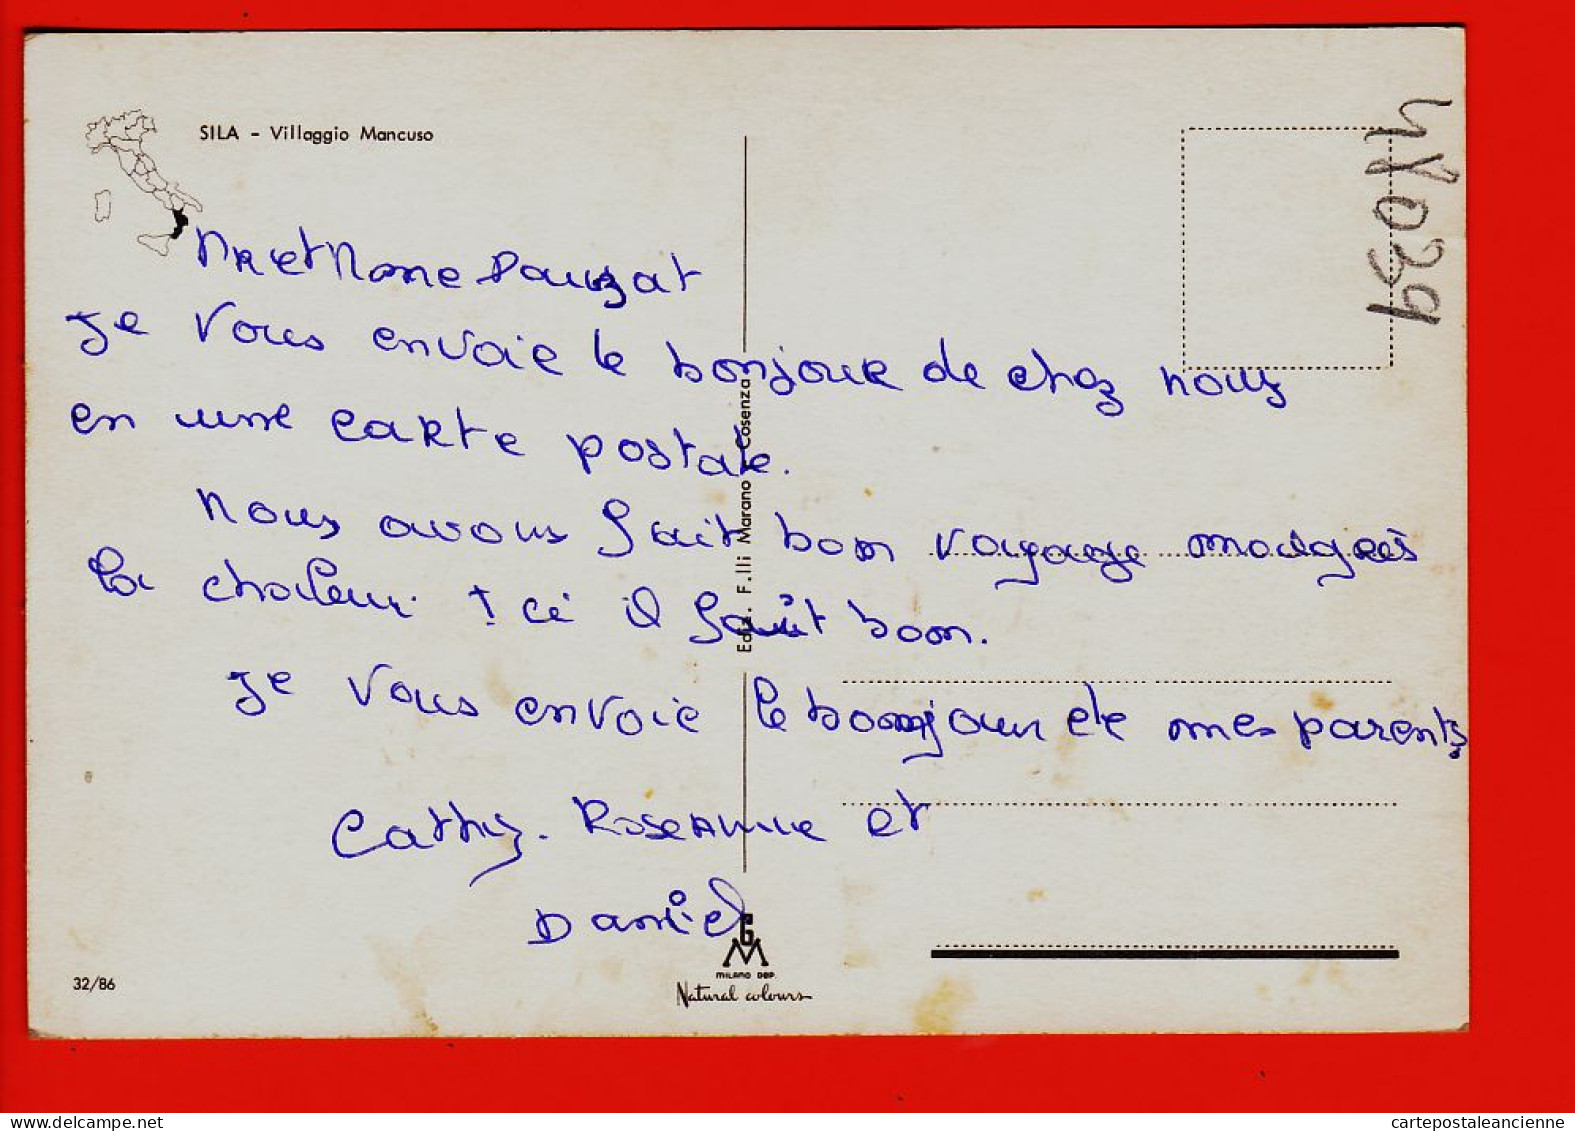 SILA - Villaggio Mancuso
MR et Mme Dauzat
Je vous envoie le bonjour de chez nous
en une carte postale.
Nous avous fait bon voyage malgres
la chaleur. Ici il fait bon.
Je vous envoie le bonjour de mes parents
Cathy. RoseAnne et
Daniel
Ediz. F.lli Marano Cosenza
48039
32/86
GM
MILANO DEP.
Natural colours
delcampe.net
cartepostaleancienne